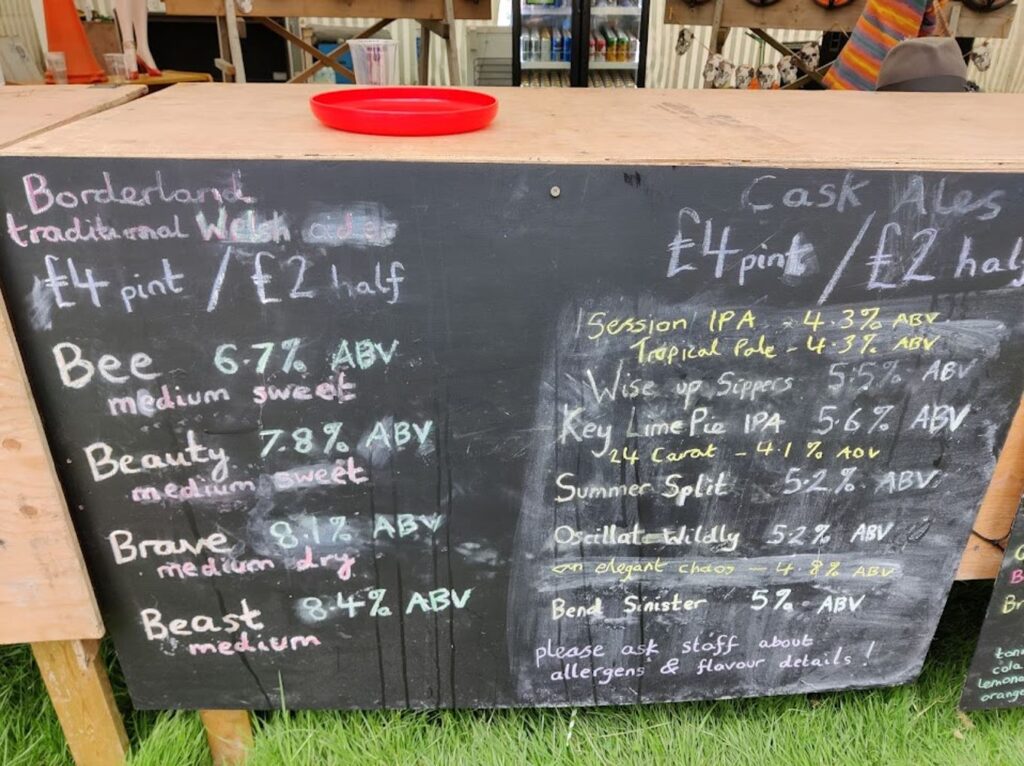 Borderland
traditional Welsh cider
£4 pint / £2 half
Bee 6.7% ABV
medium sweet
Beauty 7.8% ABV
medium sweet
Brave 8.1% ABV
medium dry
Beast 8.4% ABV
medium
Cask Ales
£4 pint / £2 half
Session IPA - 4.3% ABV
Tropical Pale - 4.3% ABV
Wise up Sippers 5.5% ABV
Key Lime Pie IPA 5.6% ABV
24 Carat - 4.1% ABV
Summer Split 5.2% ABV
Oscillate Wildly 5.2% ABV
an elegant chaos - 4.8% ABV
Bend Sinister 5% ABV
please ask staff about
allergens & flavour details!